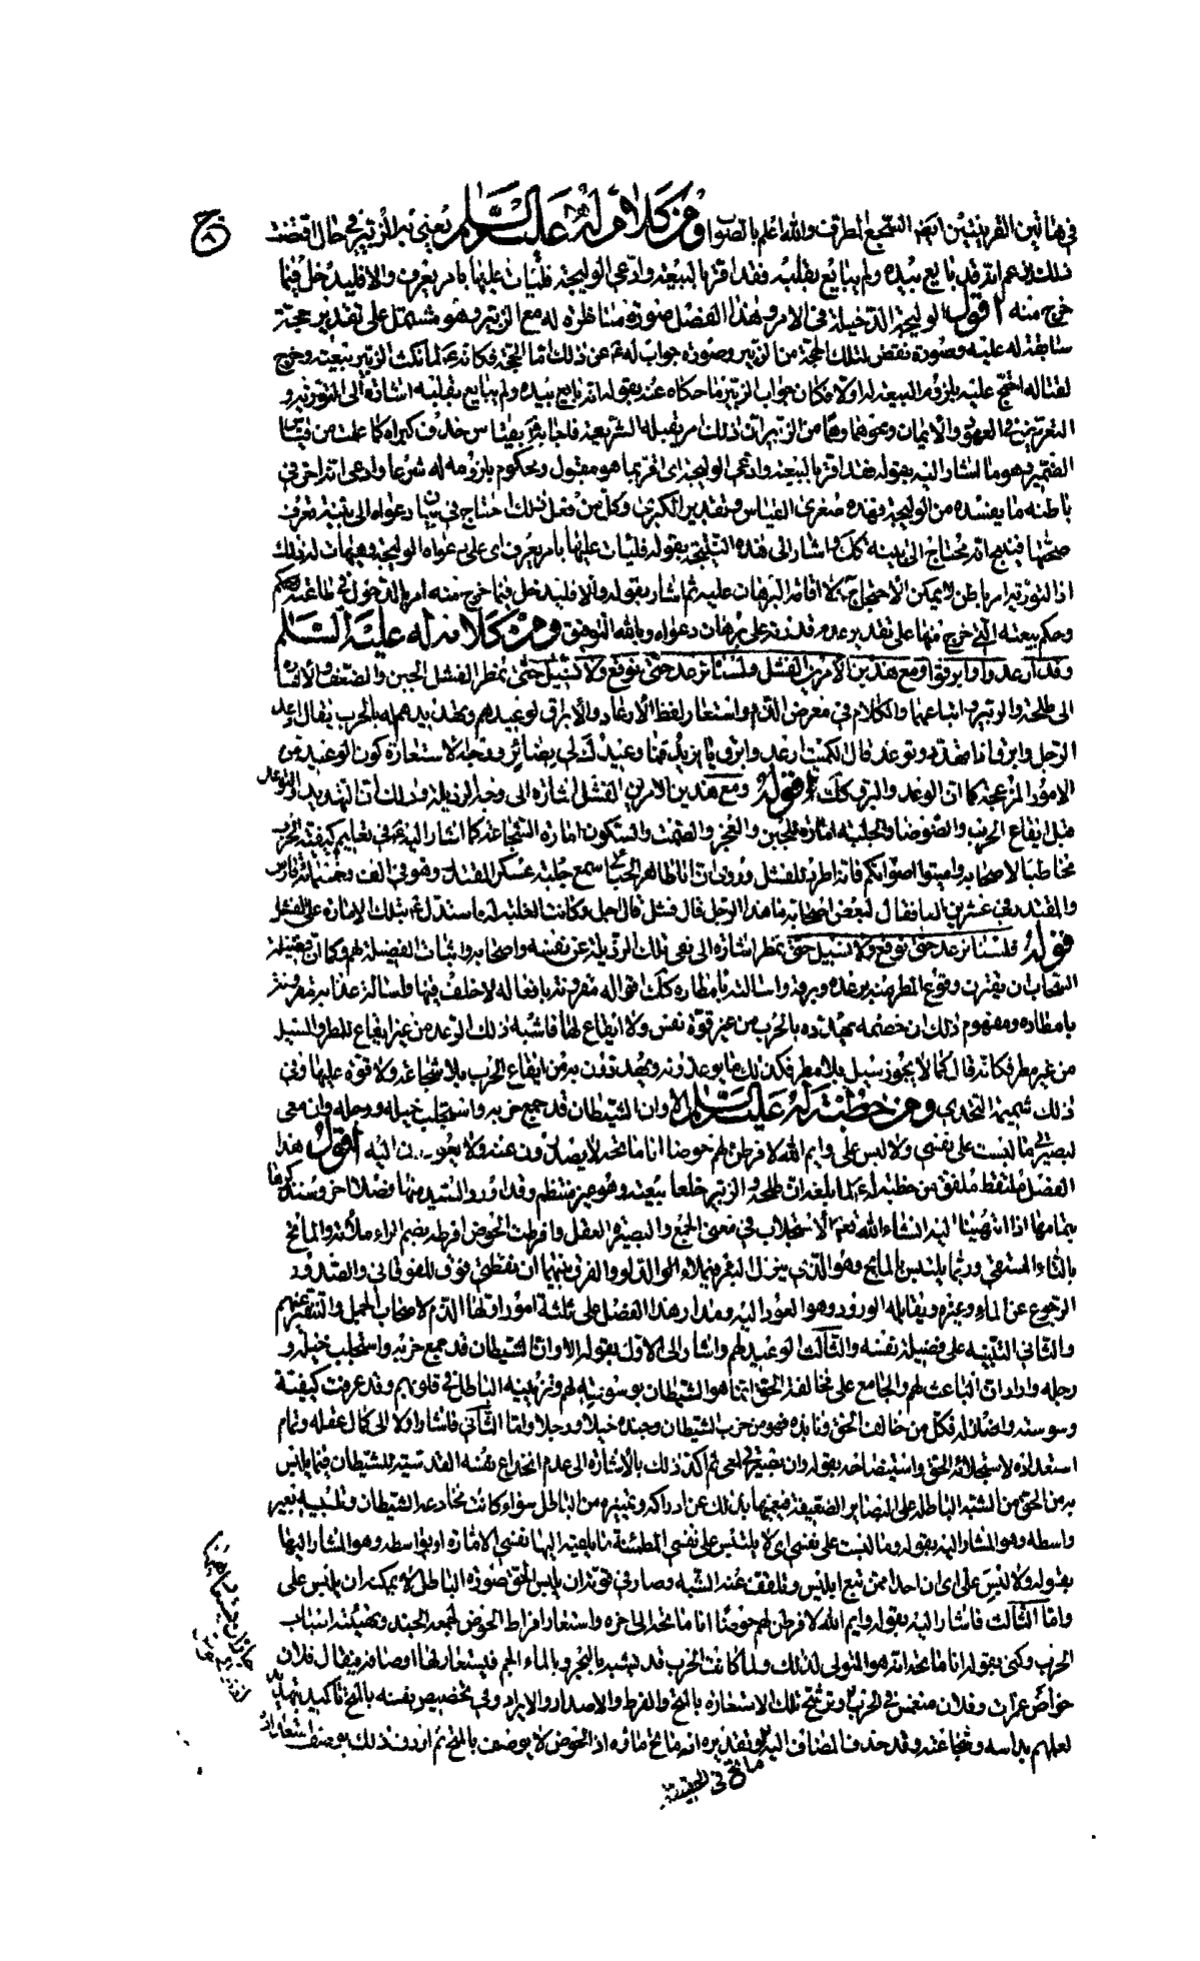 في هاتين القرينتين السجع المطرف والله اعلم بالصواب ومن كلام له عليه السلم يعني به الزبير في حال اقتضت
ذلك يزعم انه قد بايع بيده ولم يبايع بقلبه فقد اقر بالبيعة وادعى الوليجة فليات عليها بامر يعرف والا فليدخل فيما
خرج منه اقول الوليجة الدخيلة في الامر وهذا الفصل صورة مناظرة له مع الزبير وهو مشتمل على تقدير حجة
سابقة له عليه وصورة نقض لتلك الحجة من الزبير وصورة جواب له عن ذلك اما الحجة فكانه لما نكث الزبير بيعته وخرج
لقتاله احتج عليه بلزوم البيعة له اولا فكان جواب الزبير ما حكاه عنه بقوله انه بايع بيده ولم يبايع بقلبه اشارة الى التورية و
التعريض في العهود والايمان ونحوهما وهما من الزبير ان ذلك امر يقبله الشريعة فاجابه بقياس حذف كبراه كما علمت من قياس
الضمير وهو ما اشار اليه بقوله فقد اقر بالبيعة وادعى الوليجة اي اقر بما هو مقبول ومحكوم بلزومه له شرعا وادعى انه اخفى في
باطنه ما يفسده من الوليجة فهذه صغرى القياس وتقدير الكبرى وكل من فعل ذلك احتاج في بيان دعواه الى بينة تعرف
صحتها فينتج انه محتاج الى بينة كك واشار الى هذه النتيجة بقوله فليات عليها بامر يعرف اي على دعواه الوليجة وهيهات له ذلك
اذ التورية امر باطن لا يمكن الاحتجاج بها ولا اقامة البرهان عليه ثم اشار بقوله والا فليدخل فيما خرج منه امر بالدخول في طاعته
وحكم بيعته التي خرج منها على تقدير عدم قدرته على برهان دعواه وبالله التوفيق ومن كلام له عليه السلم
وقد ارعدوا وابرقوا ومع هذين الامرين الفشل ولسنا نرعد حتى نوقع ولا نسيل حتى نمطر الفشل الجبن والضعف والاشارة
الى طلحة والزبير واتباعهما والكلام في معرض الذم واستعار لفظ الارعاد والابراق لوعيدهم وتهديدهم له بالحرب يقال ارعد
الرجل وابرق اذا تهدد وتوعد قال الكميت ارعد وابرق يا يزيد فما وعيدك لي بضائر ووجه الاستعارة كون الوعيد من
الامور المزعجة كما ان الوعد والبرق كك قوله ومع هذين الامرين الفشل اشارة الى وجه الرذيلة وذلك ان التهديد والتوعد
قبل ايقاع الحرب والضوضا والجلبة امارة للجبن والعجز والصمت والسكون امارة الشجاعة كما اشار اليه في تعليم كيفية الحرب
مخاطبا لاصحابه واميتوا اصواتكم فانه اطرد للفشل وروي ان ابا طاهر الجنابي سمع جلبة عسكر المقتدر وهو في الف وخمسمائة فارس
والمقتدر في عشرين الفا فقال لبعض اصحابه ما هذا الزجل قال فشل قال اجل وكانت الغلبة له فاستدل بتلك الامارة على الفشل
قوله فلسنا نرعد حتى نوقع ولا نسيل حتى نمطر اشارة الى نفي تلك الرذيلة عن نفسه واصحابه واثبات الفضيلة لهم وكما ان فضيلة
السحاب ان يقترن وقوع المطر منه برعده وبرقه واسالته بامطاره كك اقواله مقرونة بافعاله لا خلف فيها واسالة عذابه مقرونة
بامطاره ومفهوم ذلك ان خصمه يهدده بالحرب من غير قوة نفس ولا ايقاع لها فاشبه ذلك الرعد من غير ايقاع للمطر والسيل
من غير مطر فكانه قال كما لا يجوز سيل بلا مطر فكذلك ما يوعدونه ويهددون به من ايقاع الحرب بلا شجاعة ولا قوة عليها وفي
ذلك شبهة التحدي ومن خطبة له عليه السلم الا وان الشيطان قد جمع حزبه واستجلب خيله ورجله وان معي
لبصيرتي ما لبست على نفسي ولا لبس علي وايم الله لافرطن لهم حوضا انا ماتحه لا يصدرون عنه ولا يعودون اليه اقول هذا
الفصل ملتقط ملفق من خطبة له لما بلغه ان طلحة والزبير خلعا بيعته وهو غير منتظم وقد اورد السيد منها فصلا اخر وسنذكرها
بتمامها اذا انتهينا اليه انشاء الله تعالى الاستجلاب في معنى الجمع والبصيرة العقل وافرطت الحوض افرطه بضم الراء ملأته والماتح
بالتاء المستقي وربما يلتبس بالمايح وهو الذي ينزل البئر فيملاء الدلو والفرق بينهما ان نقطتي فوق للفوقاني والصدور
الرجوع عن الماء وغيره ويقابله الورود وهو العود اليه ومدار هذا الفصل على ثلثة امور اولها الذم لاصحاب الجمل والتنفير عنهم
والثاني التنبيه على فضيلة نفسه والثالث الوعيد لهم واشار الى الاول بقوله الا وان الشيطان قد جمع حزبه واستجلب خيله و
رجله واراد ان الباعث لهم والجامع على مخالفة الحق انما هو الشيطان بوسوسته لهم وتزيينه الباطل في قلوبهم وقد عرفت كيفية
وسوسته واضلاله فكل من خالف الحق ونابذه فهو من حزب الشيطان وجنده خيلا ورجلا واما الثاني فاشار اولا الى كمال عقله وتمام
استعداده لاستجلاء الحق واستيضاحه بقوله وان بصيرتي لمعي ثم اكد ذلك بالاشارة الى عدم انخداع نفسه القدسية للشيطان فيما يلبس
به من الحق من الشبه الباطلة على البصائر الضعيفة فيعميها بذلك عن ادراكه وتمييزه من الباطل سواء كانت مخادعة الشيطان وتلبيسه بغير
واسطة وهو المشار اليه بقوله وما لبست على نفسي اي لا يلتبس على نفسي المطمئنة ما يلقيه اليها نفسي الامارة او بواسطة وهو المشار اليها
بقوله ولا لبس علي اي ان احدا ممن تبع ابليس وتلقف عنه الشبه وصار في قوته ان يلبس الحق صورة الباطل لا يمكنه ان يلبس علي
واما الثالث فاشار اليه بقوله وايم الله لافرطن لهم حوضا انا ماتحه الى اخره واستعار افراط الحوض لجمعه الجند وتهيئته اسباب
الحرب وكنى بقوله انا ماتحه انه هو المتولي لذلك ولما كانت الحرب قد تشبه بالبحر وبالماء الجم فيستعار لها اوصافه فيقال فلان
خواض غمرات وفلان منغمس في الحرب ورشح تلك الاستعارة بالمتح والفرط والاصدار والايراد وفي تخصيص نفسه بالمتح تاكيد تهديد
لعلمهم ببأسه وشجاعته وقد حذف المضاف اليه وتقديره انا ماتح ماءه اذ الحوض لا يوصف بالمتح ثم اردف ذلك بوصف استعار له
ماتح في الحقيقة